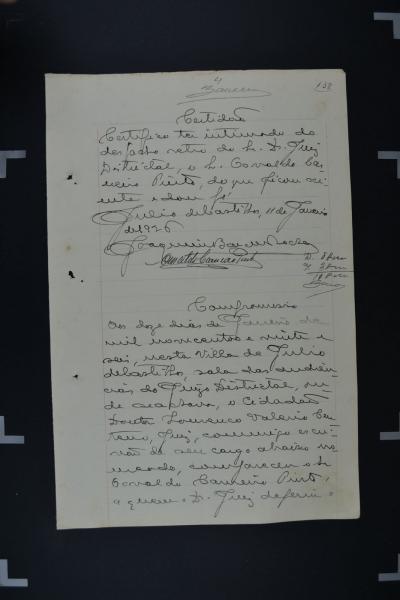 Certidão
Certifico ter intimado do
despacho retro do Sr. Dr. Juiz
Districtal, o Sr. Osvaldo Car
neiro Pinto, do que ficou sci
ente e dou fé
Julio de Castilhos, 11 de Janeiro
de 1926
Joaquim
Osvaldo Carneiro Pinto
Compromisso
Aos doze dias de Janeiro de
mil novecentos e vinte e
seis, nesta Villa de Julio
de Castilhos, sala das audien
cias do Juizo Districtal, on
de se achava, o Cidadão
Doutor Lourenço Valerio
Juiz, commigo escri
vão de seu cargo abaixo no
meado, compareceu o Sr.
Osvaldo Carneiro Pinto,
a quem o Dr. Juiz deferiu